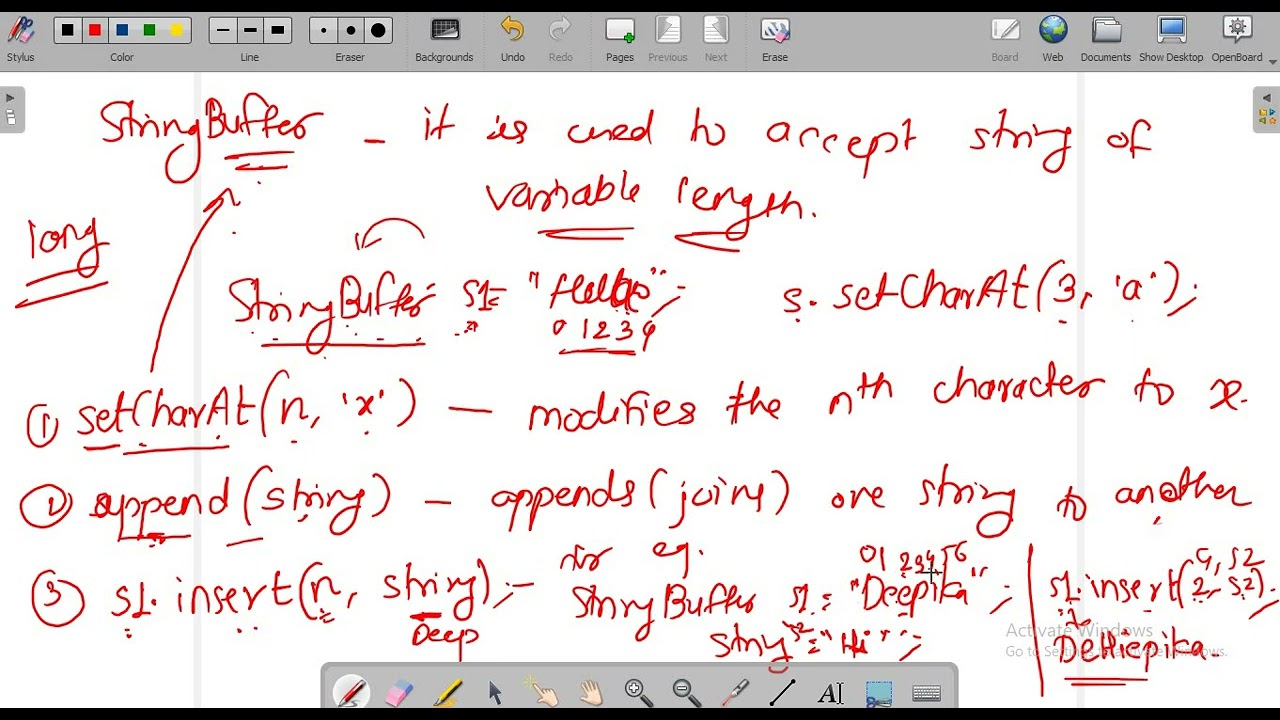 Stylus Color Line Eraser Backgrounds Undo Redo Pages Previous Next Erase Board Web Documents Show Desktop OpenBoard
StringBuffer - it is used to accept string of
variable length.
long
StringBuffer s1= " "; s. setCharAt(3, 'a');
0 1 2 3 4
① setCharAt(n, 'x') — modifies the nth character to x.
② append (string) - appends (joins) one string to another
for eg. 0 1 2 3 4 5 6 4, s2
③ s1. insert(n, string); - StringBuffer s1 = "Deepika"; s1. insert(2, s2).
Deep string s2 = "Hi"; DeHiepika.
Activate Windows
Go to Settings to activate Windows.